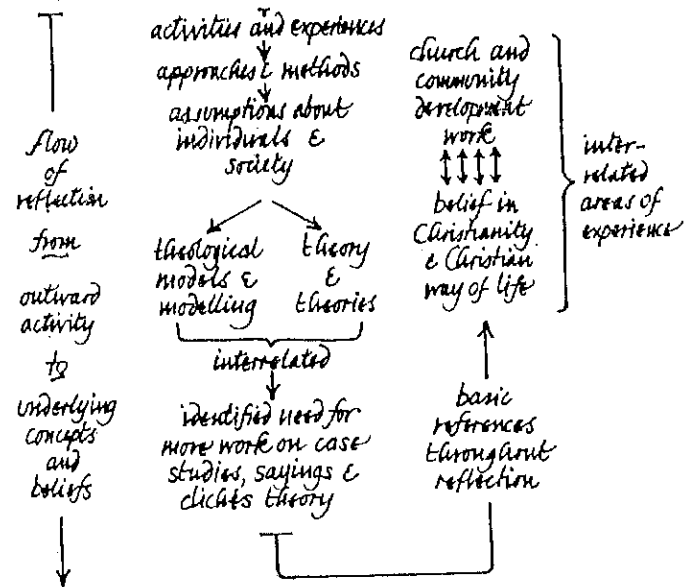 flow
of
reflection
from
outward
activity
to
underlying
concepts
and
beliefs
activities and experiences
approaches & methods
assumptions about
individuals &
society
theological
models &
modelling
theory
&
theories
interrelated
identified need for
more work on case
studies, sayings &
clichés theory
church and
community
development
work
belief in
Christianity
& Christian
way of life
inter-
related
areas of
experience
basic
references
throughout
reflection